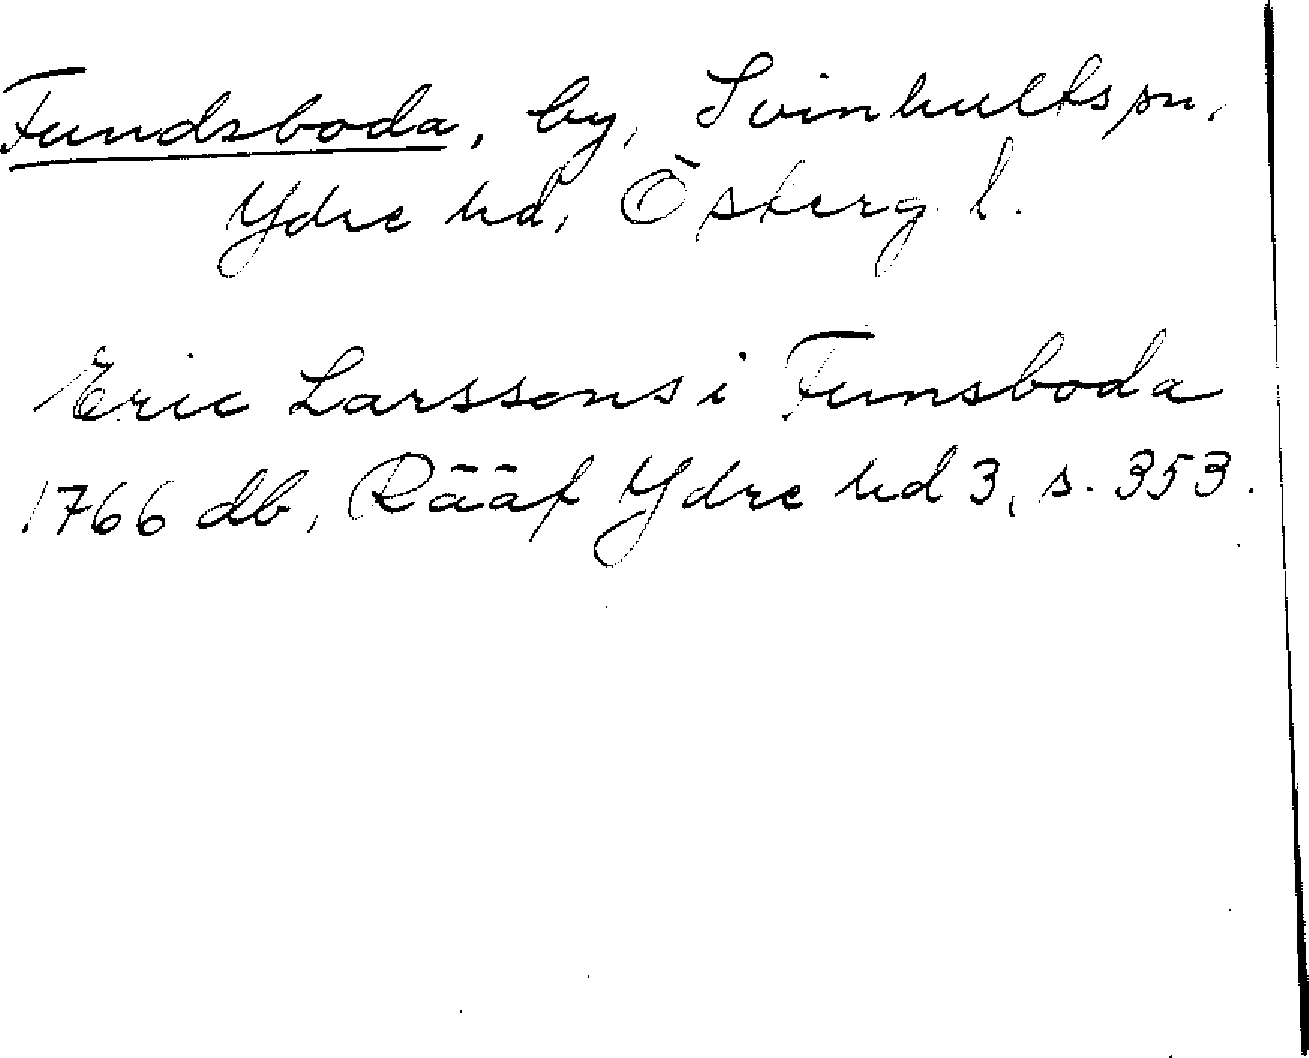 Fundsboda, by, Svinhults sn,
Ydre hd, Österg. l.
Eric Larssons i Funsboda
1766 db, Rääf Ydre hd 3, s. 353.